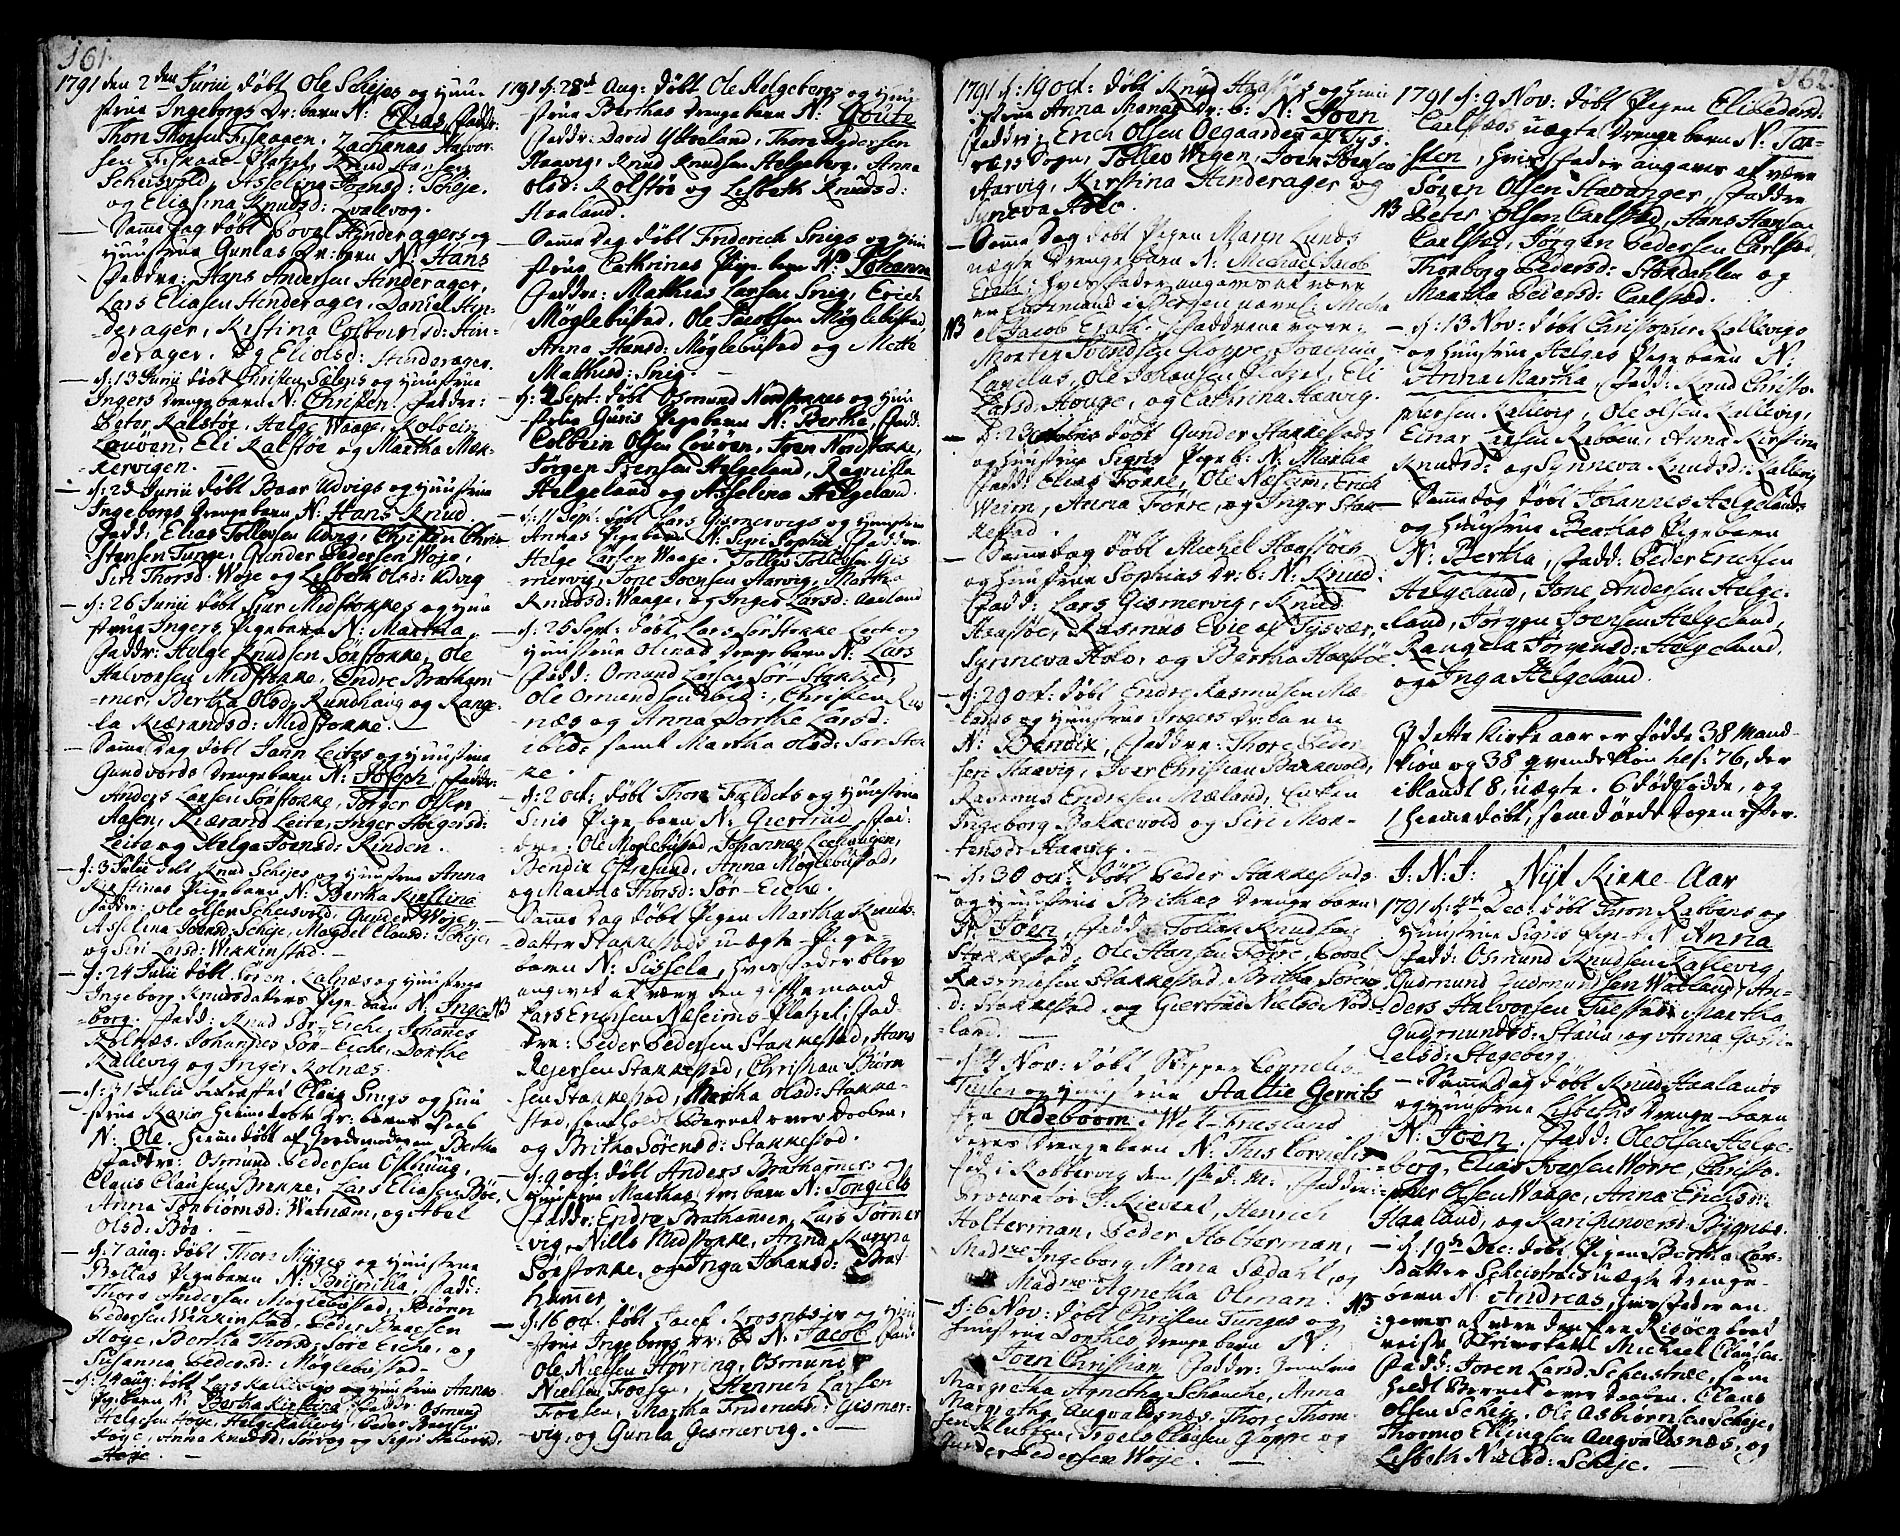 161.
1791 den 2den Junii döbt Ole Schejes og Huu-
strue Ingeborgs Dr: barn N: Elias, Fadr:
Thore Thorsen Fiskaaen, Zacharias Halvor-
sen Fiskaae Platzet, Knud Larsen
Scheisvold, Asselina Joensd: Scheje.
og Eliasina Knudsd: Qvalevog.
— Samme dag döbt Povel Hinderagers og
Huustrue Gunlas Dr: barn N: Hans
Faddr: Hans Andersen Hinderager,
Lars Eliasen Hinderager, Daniel Hin-
derager, Kistina Colbeinsd: Hin-
derager, og Eli Olsd: Hinderager.
— d: 13 Junii döbt Christen Sölens og Huustrue
Ingers Drenge barn N: Christen. Faddre:
Peter Kalstöe, Helge Waage, Kolbein
Louöen, Eli Kalstöe og Martha Mæk-
kervigen.
— d: 23 Junii döbt Baar Udvigs og Huustrue
Ingeborgs Drenge barn N: Hans Knud
Fadd: Elias Tollefsen Advig, Christen Chri-
stensen Tunge, Gunder Pedersen Woje,
Siri Thorsd: Woje og Lisbeth Olsd: Udvig
— d: 26 Junii döbt Siur Midstokkes og Huu
strue Ingers Pige barn N: Martha,
Faddr: Helge Knudsen Sörstokke, Ole
Halvorsen Midstokke, Endre Bratham-
mer, Bertha Olsd: Rundhaug og Range-
la Kiærandsd: Midstokke. —
— Samme Dag döbt Jann Leites og Huustrue
Gundvords Drenge barn N: Joseph, Faddr:
Anders Larsen Sörstokke, Torger Olsen
Aasen, Kiærand Leite, Inger Holgersd:
Leite og Helga Joensd: Kinden.
— d: 3 Julii döbt Knud Schejes og Huustrue Anna
Kirstinas Pige barn N: Bertha Kirstina
Faddr: Ole Olsen Scheisvold, Gunder Woje,
Asselina Joensd: Scheje, Magdel Clausd: Scheje,
og Siri Larsd: Wikkinstad. —
— d: 24 Julii döbt Sören Kolnæs og Huustrue
Ingeborg Knudsdatters Pige barn N: Inge-
borg. Fadd: Knud Sör-Eiche, Johanes
Kolnæs, Johannes Sör-Eiche, Dorthe
Kallevig og Inger Kolnæs.
— d: 31 Julii bekræftet Claus Snigs og Huu
strue Karis hiemmedöbte Dr: barns Daab
N: Ole. hiemmedöbt af Jordemoderen Bertha
Faddr: Osmund Pedersen Östhuug,
Claus Clausen Brekke, Lars Eliasen Böe,
Anna Torbiörnsd: Watnæm, og Abel
Olsd: Böe.
— d: 7 aug: döbt Thore Myges og Huustrue
Bollas Pige barn N: Brunilla, Fadd:
Thore Andersen Möglebustad, Biörn
Pedersen Wikkinstad, Peder Baarsen
Höje, Bertha Thorsd: Söre Eiche, og
Susanna Pedersd: Möglebustad. —
— d: 14 aug: döbt Lars Kallevigs og Huustrue Annas
Pige barn N: Bertha Kirstina, Faddr: Osmund
Helgesen Höje, Helge Kallevig, Peder Baarsen
Höje, Anna Knudsd: Sörvog og Sigri Halvord:
Höje. —
1791 d: 28de Aug: döbt Ole Helgebergs og Huu-
strue Berthas Drenge barn N: Goute
Faddr: David Ytreland, Thore Pedersen
Haavig, Knud Knudsen Helgeberg, Anna
Olsd: Kolstöe og Lisbeth Knudsd:
Haaland.
— Samme Dag döbt Friderich Snigs og Huu
strue Cathrinas Pige barn N: Johanna
Faddr: Mathias Larsen Snig, Erich
Möglebustad, Ole Jacobsen Möglebustad,
Anna Hansd: Möglebustad og Mette
Mathisd: Snig.
d: 4 Sept: döbt Osmund Nordstokkes og Huu
strue Guris Pige barn N: Bertha, Fadd:
Colbein Olsen Louöen, Iver Nordstokke,
Jörgen Joensen Helgeland, Ragnilla
Helgeland og Asselina Helgeland.
— d: 11 Sept: döbt Lars Gismervigs og Huustrue
Annas Pige barn N: Siri Sophia, Faddre
Helge Larsen Waage, Tollef Tollefsen Gis
mervig, Jone Joensen Aarvig, Martha
Knudsd: Waage, og Inger Larsd: Aadland
— d: 25 Sept: döbt Lars Sörstokke Leite og
Huustrue Olenas Drenge barn N: Lars
Fadd: Omund Larsen Sör-Stokke,
Ole Omundsen Ibid:, Christen Kol-
næs og Anna Dorthe Larsd:
ibid, samt Martha Olsd: Sör Stok-
ke.
— d: 2 oct: döbt Thore Fældets og Huustrue
Siris Pige-barn N: Giertrud, Fad-
dre: Ole Möglebustad, Johannes Leehaugen,
Bendix Östresund, Anna Möglebustad,
og Martha Thorsd: Sör-Eiche.
Samme Dag döbt Pigen Martha Knuds-
datter Stakkestads uægte Pige-
barn N: Sissela, hvis Fader blev
angivet at være den gifte mand
NB Lars Erichsen Næseims-Platzet; Fad-
dre: Peder Pedersen Stakkestad, Hans
Rejersen Stakkestad, Christian Biörn
sen Stakkestad, Martha Olsd: Stakke-
stad, som holdt Barnet over Daaben,
og Britha Sörensd: Stakkestad.
— d: 9 oct: döbt Anders Brathammers og
Huustrue Marthas Dr: barn N: Tongiels
Faddr: Endre Brathammer, Lars Törner
vig, Nills Midstokke, Anna Karina
Sörstokke, og Inga Johansd: Brat
hammer.
— d: 16 oct: döbt Jacob Kropatsjer og Huu
strue Ingeborgs Dr: b N: Jacob, Fadd
Ole Nielsen Hövring, Osmund
Nielsen Foesen, Henrich Larsen
Foesen, Martha Friderichs: Gismer-
vig, og Gunla Gismervig. —
162.
1791 d: 19 oct: döbt Knud Haaskes og Huu
strue Anna Marias Dr: b: N: Joen
Faddr: Erich Olsen Oegaarden af Tys-
vars Sogn, Tollev Wigen, Joen Hansen
Aarvig, Kirstina Hinderager og
Syneva Hole.
— Samme Dag döbt Pigen Maren Lunds
uægte Drenge barn N: Michael Jacob
Eratz: hvis Fader angaves at være
en Kiöbmand i Bergen navnl: Micha
NB el Jacob Eratz. Faddrene vare:
Morten Svendsen Gloppe, Joachim
Lagelus, Ole Johansen Platzet, Eli
Larsd: Houge, og Cathrina Haavig.
— d: 23 Octobris döbt Gunder Stakkestads
og Huustrue Sigris Pige b: N: Martha
Fadd: Elias Förre, Ole Næseim, Erich
Weim, Anna Förre, og Inger Stak
kestad.
— Samme dag döbt Michel Haastöes
og Huustrue Sophias Dr: b: N: Knud.
Fadd: Lars Gismervig, Knud
Haastöe, Rasmus Evie af Tysvær,
Synneva Hole, og Bertha Haastöe.
— d: 29 oct: döbt Endre Rasmusen Mæ-
lands og Huustrue Ingers Dr: barn
N: Bendix, Faddre: Thore Peder
sen Haavig, Iver Christian Bakkevold,
Rasmus Endresen Mæland, Enken
Ingeborg Bakkevold og Siri Mor-
tensd: Haavig.
— d: 30 oct: döbt Peder Stakkestads
og Huustrue Brithas Drenge barn
N: Joen, Fadd: Tollak Knudsen
Stakkestad, Ole Hansen Förre, Povel
Rasmusen Stakkestad, Britha Sörens
d: Stakkestad, og Giertrud Nielsd: Nord-
land.
— d: 4 Nov: döbt Skipper Cornelis
Tiisen og Huustrue Aaltie Gerrits
fra Oldeboorn i West-Friesland
deres Drenge barn N: Thiis Cornelis
föd i Kobbervig den 1ste d: M: , Faddr:
Procurator J: Kievert, Henrich
Holterman, Peder Holterman,
Madme Ingeborg Maria Sædahl, og
Madme Agnetha Otman.
— d: 6 Nov: döbt Christen Tunges og
Huustrue Dorthes Drenge barn N:
Joen Christian Faddr: Jomfrue
Margretha Agnetha Schanche, Anna
Margretha Augvaldsnæs, Thore Thom-
sen Klubben, Ingels Clausen Gloppe og
Gunder Pedersen Woje. —
1791 d: 9 Nov: döbt Pigen Eli Pedersd:
Carlstads uægte Drenge barn N: Tor-
sten, hvis Fader angaves at være
Sören Olsen Stavanger, Faddre
NB Peter Olsen Carlstad, Hans Hansen
Carlstad, Jörgen Pedersen Carlstad,
Thorborg Pedersd: Stokdahlen og
Martha Pedersd: Carlstad.
— d: 13 Nov: döbt Christopher Kallevigs
og Huustrue Helges Pige barn N:
Anna Martha, Fadd: Knud Christo-
phersen Kallevig, Ole Olsen Kallevig,
Einar Larsen Rabben, Anna Kirstina
Knudsd: og Synneva Knudsd: Kallevig
— Samme dag döbt Johannes Helgelands
og Huustrue Berthas Pige barn
N: Bertha, Fadd: Peder Erichsen
Helgeland, Jone Andersen Helge-
land, Jörgen Joensen Helgeland,
Rangela Jörgensd: Helgeland,
og Inga Helgeland.
I dette Kirke aar er födde 38 Mand-
kiön og 38 qvindekiön hef: 76, der
iblandt 8, uægte. 6 dödfödde, og
1 hiemmedöbt, som döde dagen efter.
J: N: J: Nyt Kirke-Aar
1791 d: 4de Dec: döbt Thore Rabbens og
Huustrue Sigris Pige-b: N: Anna
Fadd: Osmund Knudsen Kallevig,
Gudmund Gudmundsen Watland, An-
ders Halvorsen Tuestad, Martha
Gudmundsd: Stava, og Anna Gabri-
elsd: Stegeberg.
— Samme dag döbt Knud Haalands
og Huustrue Lisbeths Drenge-barn
N: Joen. Fadd: Ole Olsen Helge-
berg, Elias Iversen Worre, Christo-
pher Olsen Waage, Anna Erichsd:
Haaland, og Kari Gunversd: Bygnes.
— d: 19de Dec: döbt Pigen Bertha Lars-
datter Scheistrees uægte Drenge-
barn N: Andreas, hvis Fader an-
NB gaves at være den fra Risöen bort
reiste Skrivekarl Michael Clausen.
Fadd: Joren Larsd: Scheistree, som
holdt Barnet over Daaben. Claus
Olsen Scheje, Ole Asbiörnsen Scheje,
Thormo Ellingsen Augvaldsnæs, og
Lisbeth Nielsd: Scheje. —